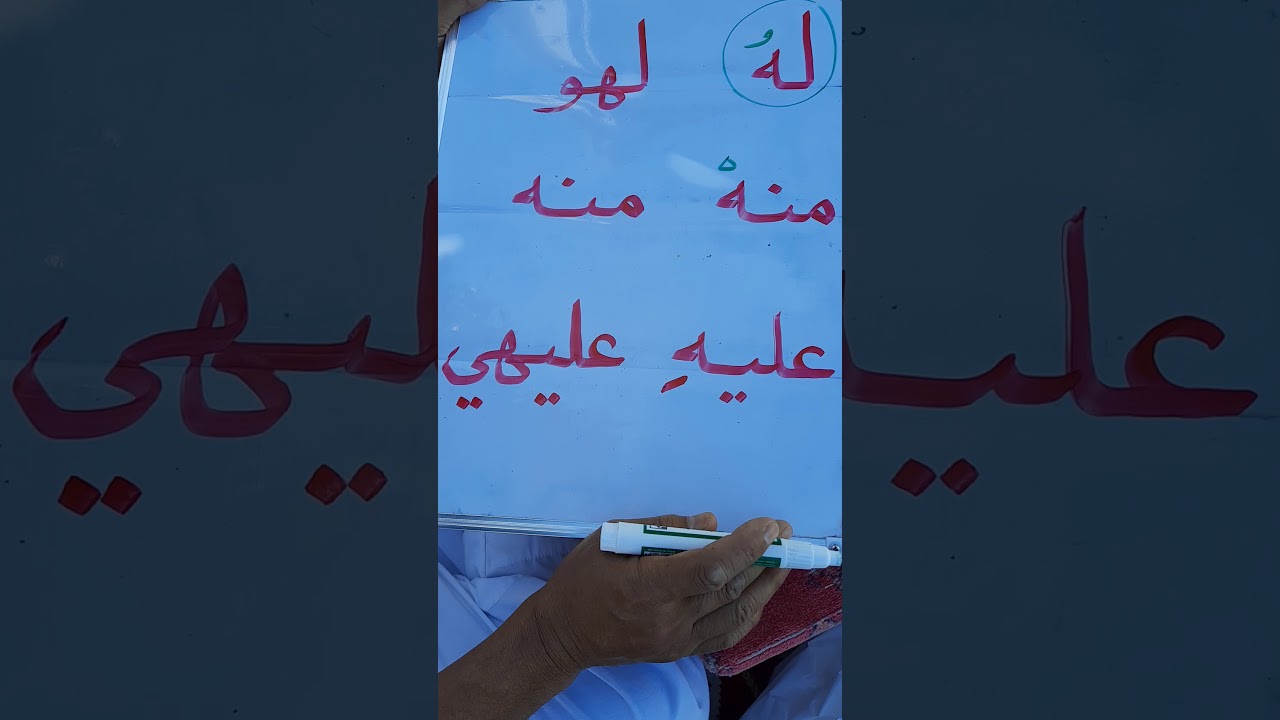 لهُ لهو
منهْ منه
عليهِ عليهي